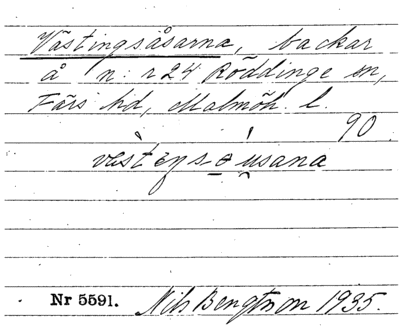 Västingsåsarna, backar
å n:r 24 Röddinge sn,
Färs hd, Malmöh. l.
90
Nr 5591. Nils Bengtson 1935.